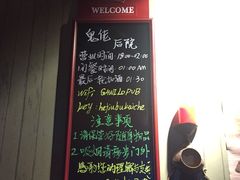 WELCOME
鬼佬
后院
营业时间 18:00-02:00
闭餐时间 01:00AM
最后一轮加酒 01:30
WiFi: GWAILOPUB
key: hejiubukaiche
注意事项
1.请保管好随身物品
2.吸烟请移步门外